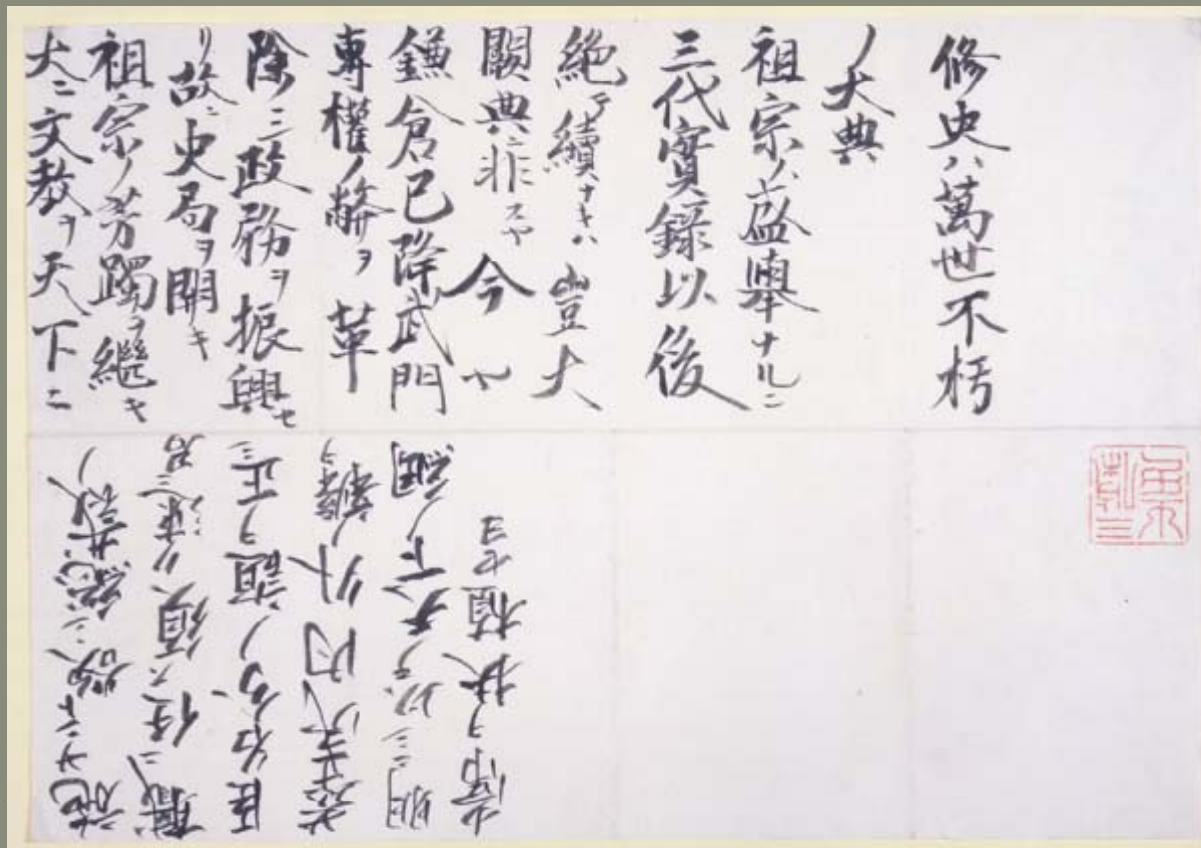 修史ハ萬世不朽
ノ大典
祖宗ノ盛擧ナルニ
三代實錄以後
絶テ續ナキハ豈大
闕典ニ非スヤ今ヤ
鎌倉已降武門
專權ノ弊ヲ革
除シ政務ヲ振興セ
リ故ニ史局ヲ開キ
祖宗ノ芳躅ヲ繼キ
大ニ文教ヲ天下ニ
施サント欲シ總裁ノ
職ニ任ス須ク速ニ君
臣名分ノ誼ヲ正シ
華夷内外ノ辨ヲ
明ニシ以テ天下ノ綱
常ヲ扶植セヨ